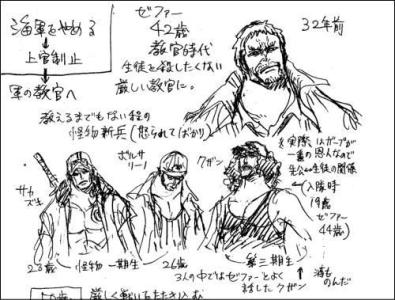 海軍をやめる
↓
上官制止
↓
軍の教官へ
ゼファー
42歳
教官時代
生徒を殺したくない
厳しい教官に。
32年前
教えるまでもない程の
怪物新兵(怒られてばかり)
サカズキ
ボルサリーノ
クザン
※実際はガープが
一番の恩人なので
先公⇔生徒の関係
(入隊時
19歳
ゼファー
44歳)
23歳 怪物一期生 26歳
第三期生
3人の中ではゼファーとよく
話したクザン
↑酒も
のんだ
厳しく戦いをたたき込む